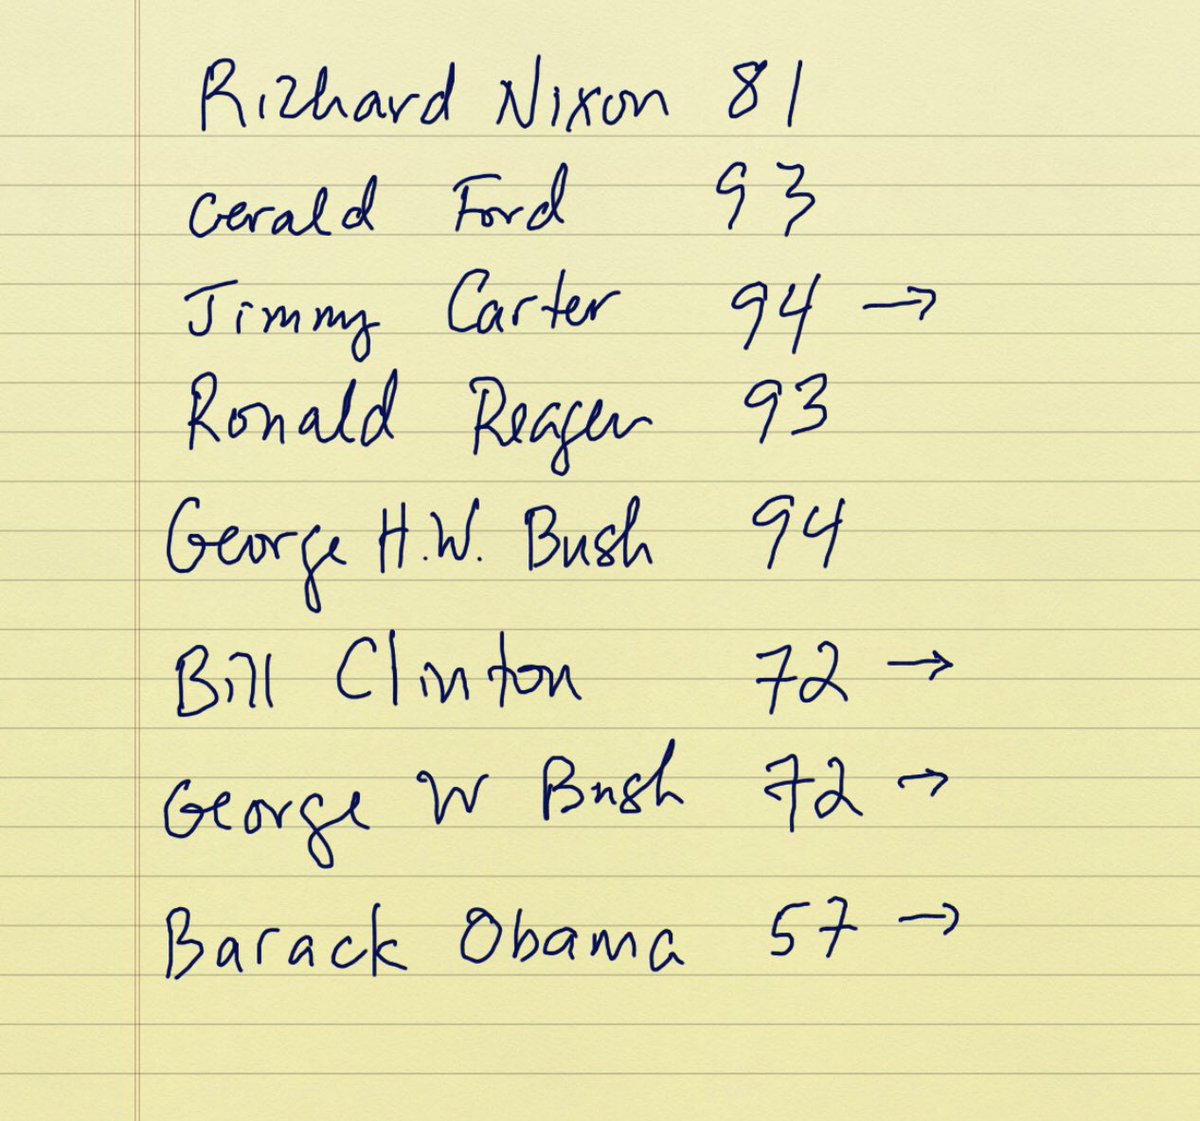 Richard Nixon 81
Gerald Ford 93
Jimmy Carter 94 →
Ronald Reagen 93
George H.W. Bush 94
Bill Clinton 72 →
George W Bush 72 →
Barack Obama 57 →